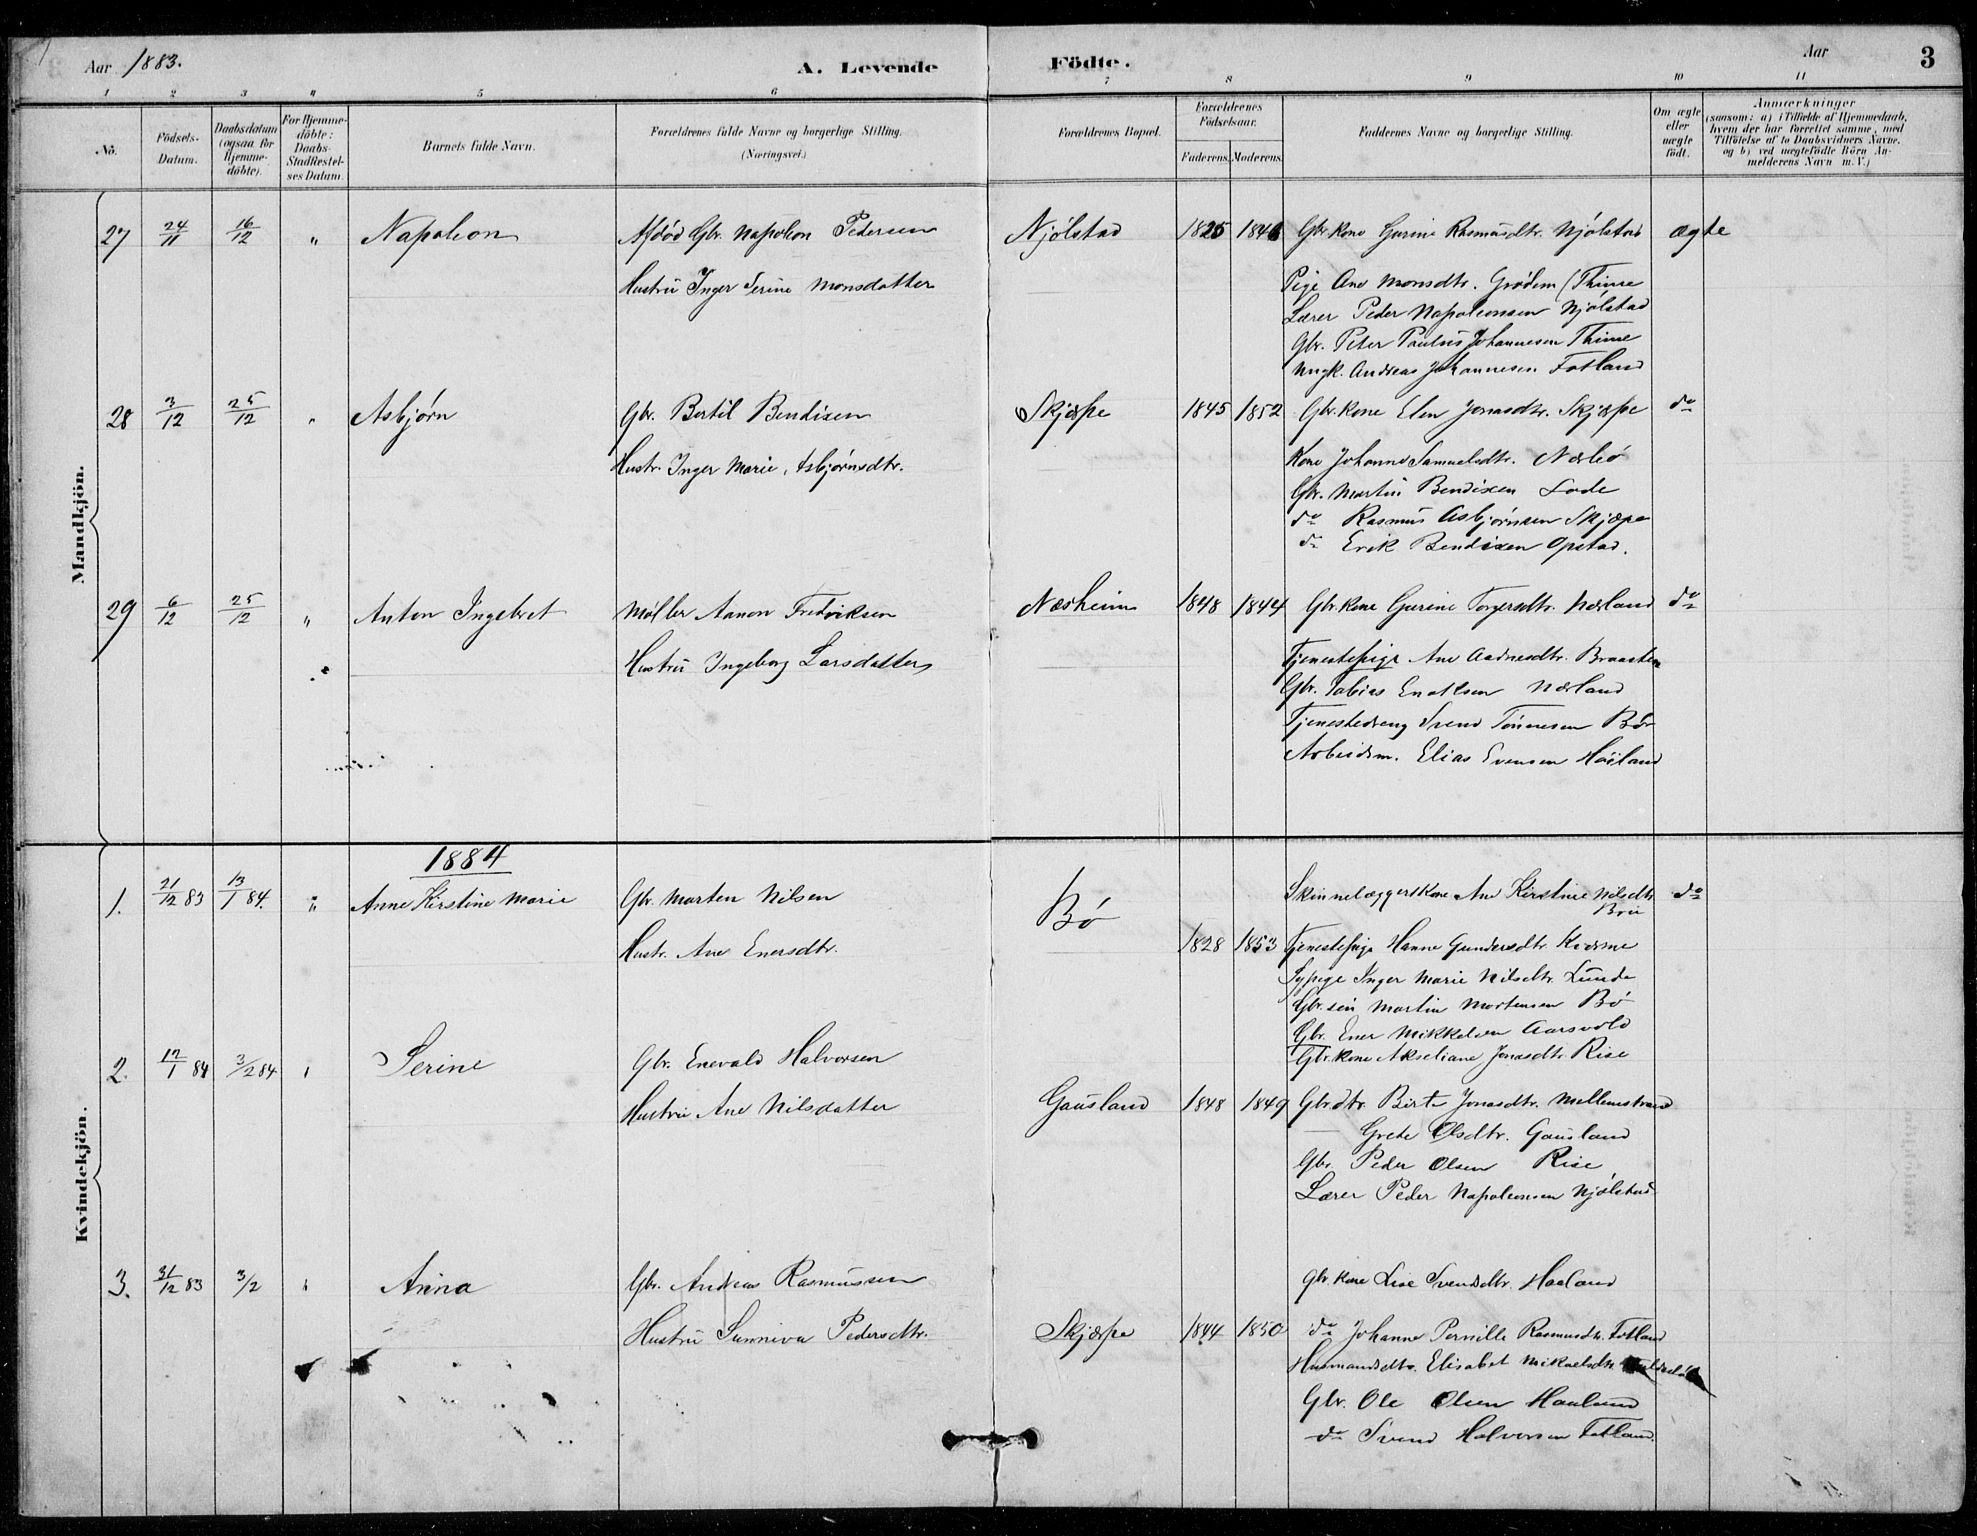 Aar 1883.
A. Levende Födte.
Aar
3
1 2 3 4 5 6 7 8 9 10 11
No.
Födsels-Datum.
Daabsdatum (ogsaa for Hjemmedöbte).
For Hjemmedöbte: Daabs-Stadfæstelses Datum.
Barnets fulde Navn.
Forældrenes fulde Navne og borgerlige Stilling. (Næringsvei.)
Forældrenes Bopæl.
Forældrenes Födselsaar.
Faderens. Moderens.
Faddernes Navne og borgerlige Stilling.
Om ægte eller uægte födt.
Anmærkninger
(saasom: a) i Tilfælde af Hjemmedaab,
hvem der har forrettet samme, med
Tilföielse af to Daabsvidners Navne.
og b) ved uægtefödte Börn An-
melderens Navn m. V.)
Mandkjön.
27 24/11 16/12 " Napoleon Afdød Gbr. Napoleon Pedersen Njølstad 1825 1846 Gbr.kone Gurine Rasmusdtr. Njølstad ægte
Hustru Inger Serine Monsdatter Pige Ane Monsdtr. Grødem (Thime
Lærer Peder Napoleonsen Njølstad
Gbr. Peter Paulus Johannesen Thime
Ungk. Andreas Johannesen Fotland
28 3/12 25/12 " Asbjørn Gbr. Bertil Bendixen Skjæpe 1845 1852 Gbr.kone Elen Jonasdtr. Skjæpe do
Hustr. Inger Marie Asbjørnsdtr. Kone Johanne Samuelsdtr. Nærbø
Gbr. Martin Bendixen Lode
do Rasmus Asbjørnsen Skjæpe
do Erik Bendixen Opstad.
29 6/12 25/12 " Anton Ingebret Møller Aanon Fredriksen Næsheim 1848 1844 Gbr.kone Gurine Torgersdtr. Nærland do
Hustru Ingeborg Larsdatter Tjenestepige Ane Aadnesdtr. Braasten
Gbr. Tobias Enoksen Nærland
Tjenestedreng Svend Tønnesen Bø
Arbeidsm. Elias Evensen Høiland
Kvindekjön.
1884
1. 21/12 83 13/1 84. " Anne Kirstine Marie Gbr. Morten Nilsen Bø Skinnelæggerkone Ane Kirstine Nilsdtr. do
Hustr. Ane Enersdtr. 1828 1853 Tjenestepige Hanne Gundersdtr. Kværme
Sypige Inger Marie Nilsdtr. Lunde
Gbr.søn Martin Mortensen Bø
Gbr. Ener Mikkelsen Aarsvold
2. 17/1 84 3/2 84 " Serine Gbr. Enevald Halvorsen Gbr.kone Akseliane Jonasdtr. Rise
Hustru Ane Nilsdatter Gausland 1848 1849 Gbr.dtr. Birte Jonasdtr. Mellemstrand
Grete Olsdtr. Gausland
Gbr. Peder Olsen Rise
Lærer Peder Napoleonsen Njølstad
3. 31/12 83 3/2 " Anna Gbr. Andreas Rasmussen Gbr.kone Lise Svendsdtr. Haaland
Hustru Sunniva Pedersdtr. Skjæpe 1844 1850 do Johanne Pernille Rasmusdtr. Fotland
Husmandsdtr. Elisabet Mikaelsdtr.
Gbr. Ole Olsen Haaland
do Svend Halvorsen Fotland.